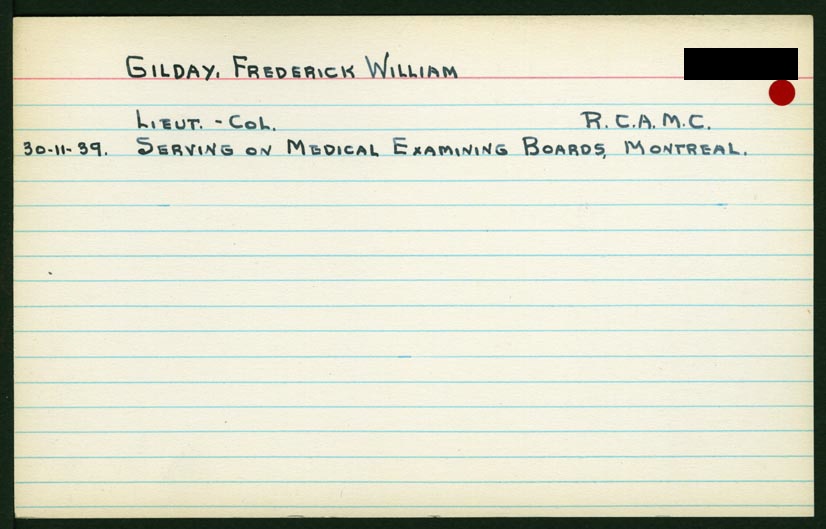 GILDAY, FREDERICK WILLIAM
LIEUT. - COL. R.C.A.M.C.
30-11-39. SERVING ON MEDICAL EXAMINING BOARDS, MONTREAL.